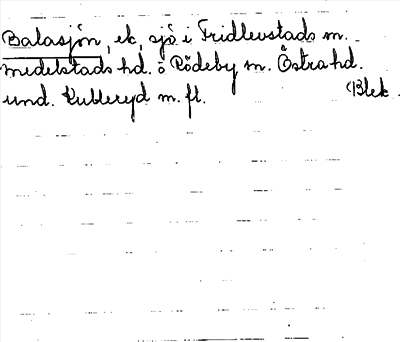 Balasjön, ek, sjö i Fridlevstads sn.
medelstads hd. o Rödeby sn. Östra hd.
und. Kubleryd m. fl. Blek.